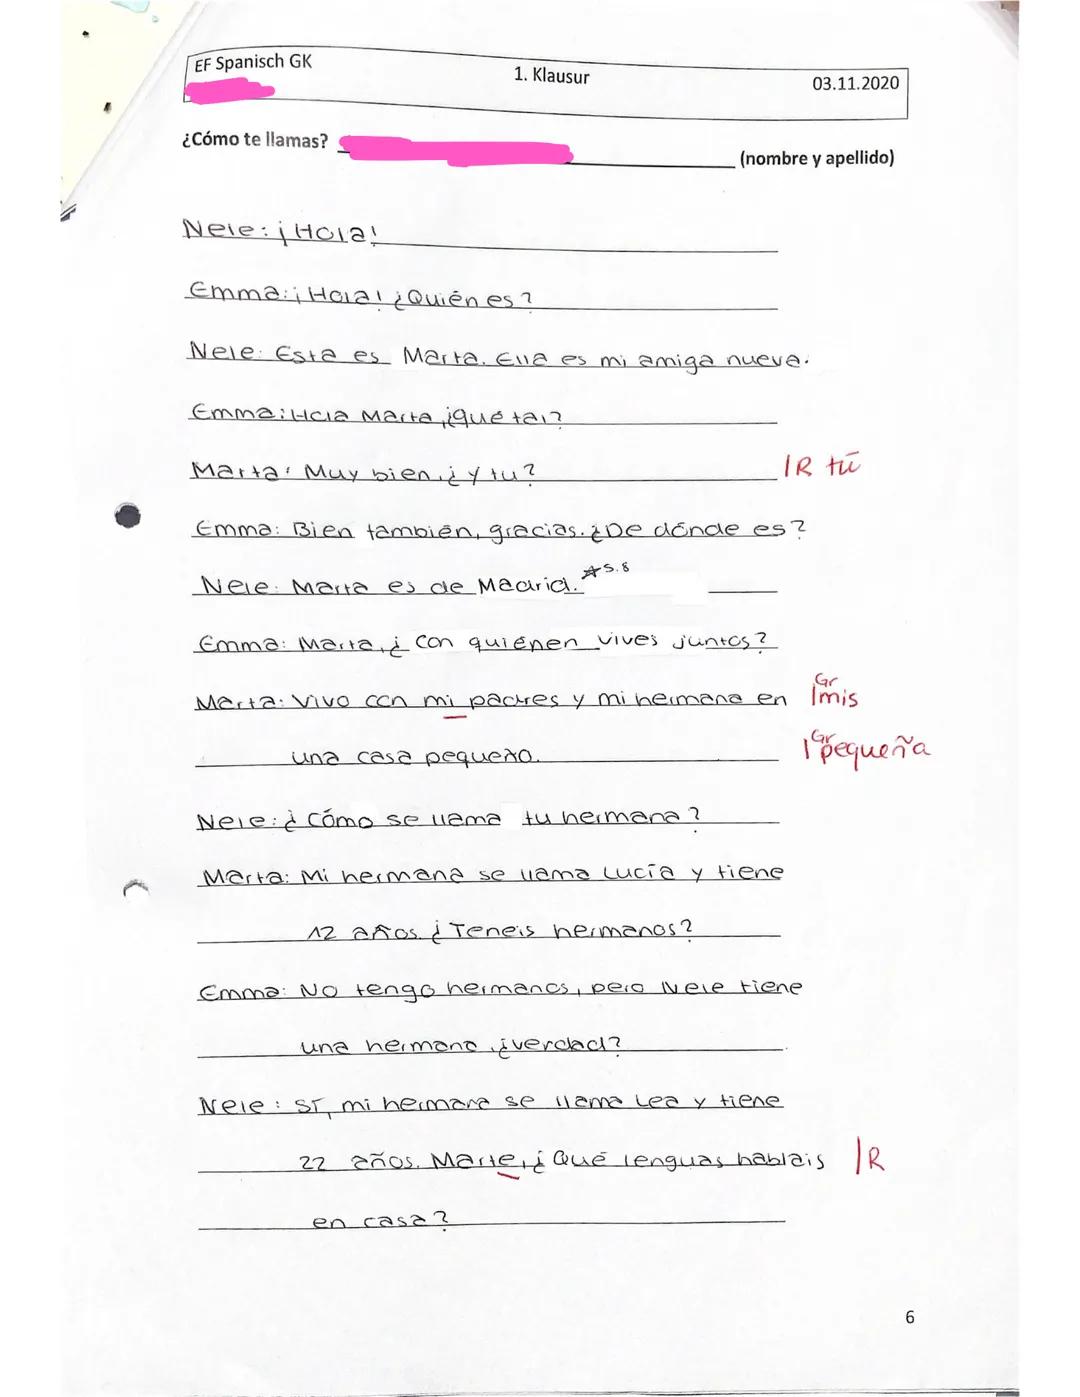 EF Spanisch GK
1. Klausur
03.11.2020
¿Cómo te llamas?
(nombre y apellido)
Nele: ¡Hola!
Emma: ¡Hola! ¿Quién es?
Nele: Esta es Marta. Ella es mi amiga nueva.
Emma: Hola Marta, ¿qué tal?
Marta: Muy bien, ¿y tu? |R tú
Emma: Bien también, gracias. ¿De dónde es?
Nele: Marta es de Madrid. *S.8
Emma: Marta, ¿ con quiénen vives juntos?
Marta: Vivo con mi padres y mi hermana en |Gr mis
una casa pequeño. |Gr pequeña
Nele: ¿ Cómo se llama tu hermana?
Marta: Mi hermana se llama Lucía y tiene
12 años. ¿Teneis hermanos?
Emma: No tengo hermanos, pero Nele tiene
una hermana, ¿verdad?
Nele: Sí, mi hermana se llama Lea y tiene
22 años. Marte, ¿ Qué lenguas hablais |R
en casa?
6